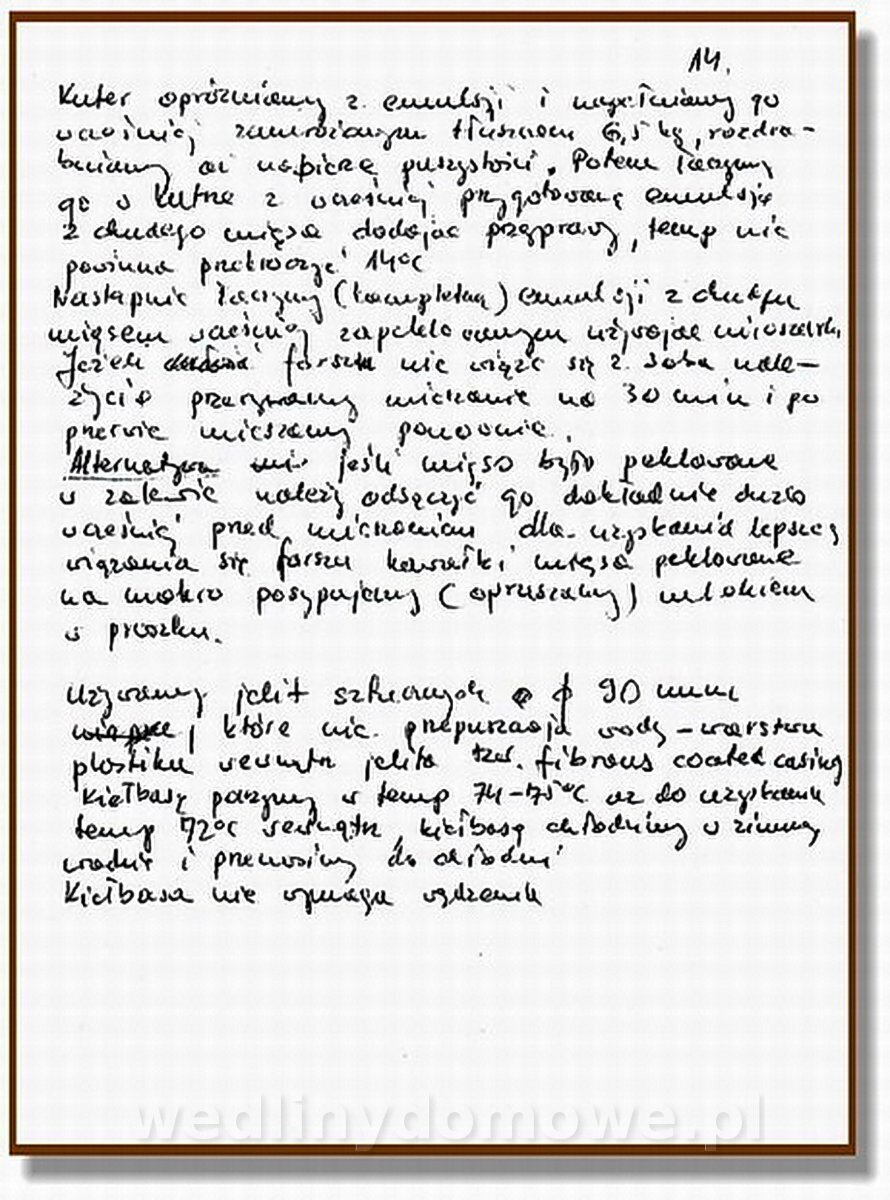 14.
Kuter opróżniamy z emulsji i napełniamy go
wcześniej zamrożonym tłuszczem 6,5 kg, rozdra-
bniamy aż nabierze puszystości. Potem łączymy
go w kutrze z wcześniej przygotowaną emulsją
z chudego mięsa dodając przyprawy, temp nie
powinna przekroczyć 14°C
Następnie łączymy (kompletną) emulsji z chudym
mięsem wcześniej zapeklowanym używając mieszarki.
Jeżeli farsz nie wiąże się z sobą nale-
życie przerywamy mieszanie na 30 min i po
przerwie mieszamy ponownie.
Alternatywa jeśli mięso było peklowane
w zalewie należy odsączyć go dokładnie dużo
wcześniej przed mieszaniem dla uzyskania lepszej
wiązania się farszu kawałki mięsa peklowane
na mokro posypujemy (opruszamy) mlekiem
w proszku.
Używamy jelit sztucznych ϕ 90 mm
które nie przepuszczają wody – warstwa
plastiku wewnątrz jelita tzw. fibrous coated casing
Kiełbasę parzymy w temp 74-75°C aż do uzyskania
temp 72°C wewnątrz, kiełbasę chłodzimy w zimnej
wodzie i przenosimy do chłodni
Kiełbasa nie wymaga wędzenia
wedlinydomowe.pl